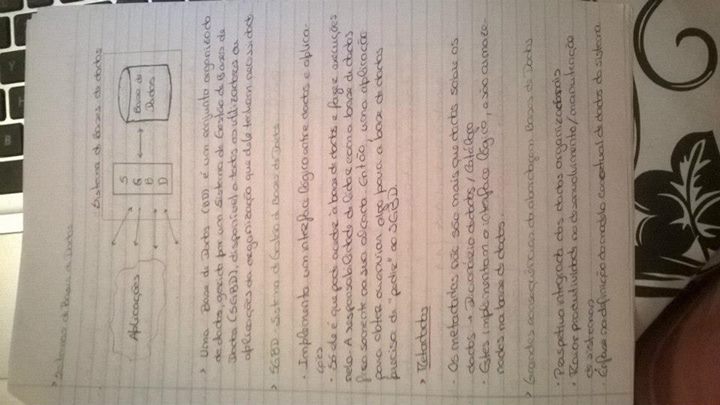 > Sistemas de Bases de Dados
Sistema de Bases de dados
Aplicações
S
G
B
D
Base de
Dados
> Uma Base de Dados (BD) é um conjunto organizado
de dados, gerido por um Sistema de Gestão de Bases de
Dados (SGBD), disponível a todos os utilizadores ou
aplicações da organização que dele tenham necessidade
> SGBD - Sistema de Gestão de Bases de Dados
· Implementa um interface lógico entre dados e aplica-
ções
· Só ele é que pode aceder à base de dados e fazer execuções
nela. A responsabilidade de lidar com a base de dados
fica somente ao seu alcance. Então, uma aplicação
para obter ou enviar algo para a base de dados
precisa de "pedir" ao SGBD.
> Metadados
· Os metadados não são mais que dados sobre os
dados → dicionário de dados / catálogo
· Estes implementam o interface lógico, e são armaze-
nados na base de dados.
> Grandes consequências da abordagem Bases de Dados
· Perspetiva integrada dos dados organizacionais
· Maior produtividade no desenvolvimento / manutenção
de sistemas
Ênfase na definição do modelo conceptual de dados do sistema